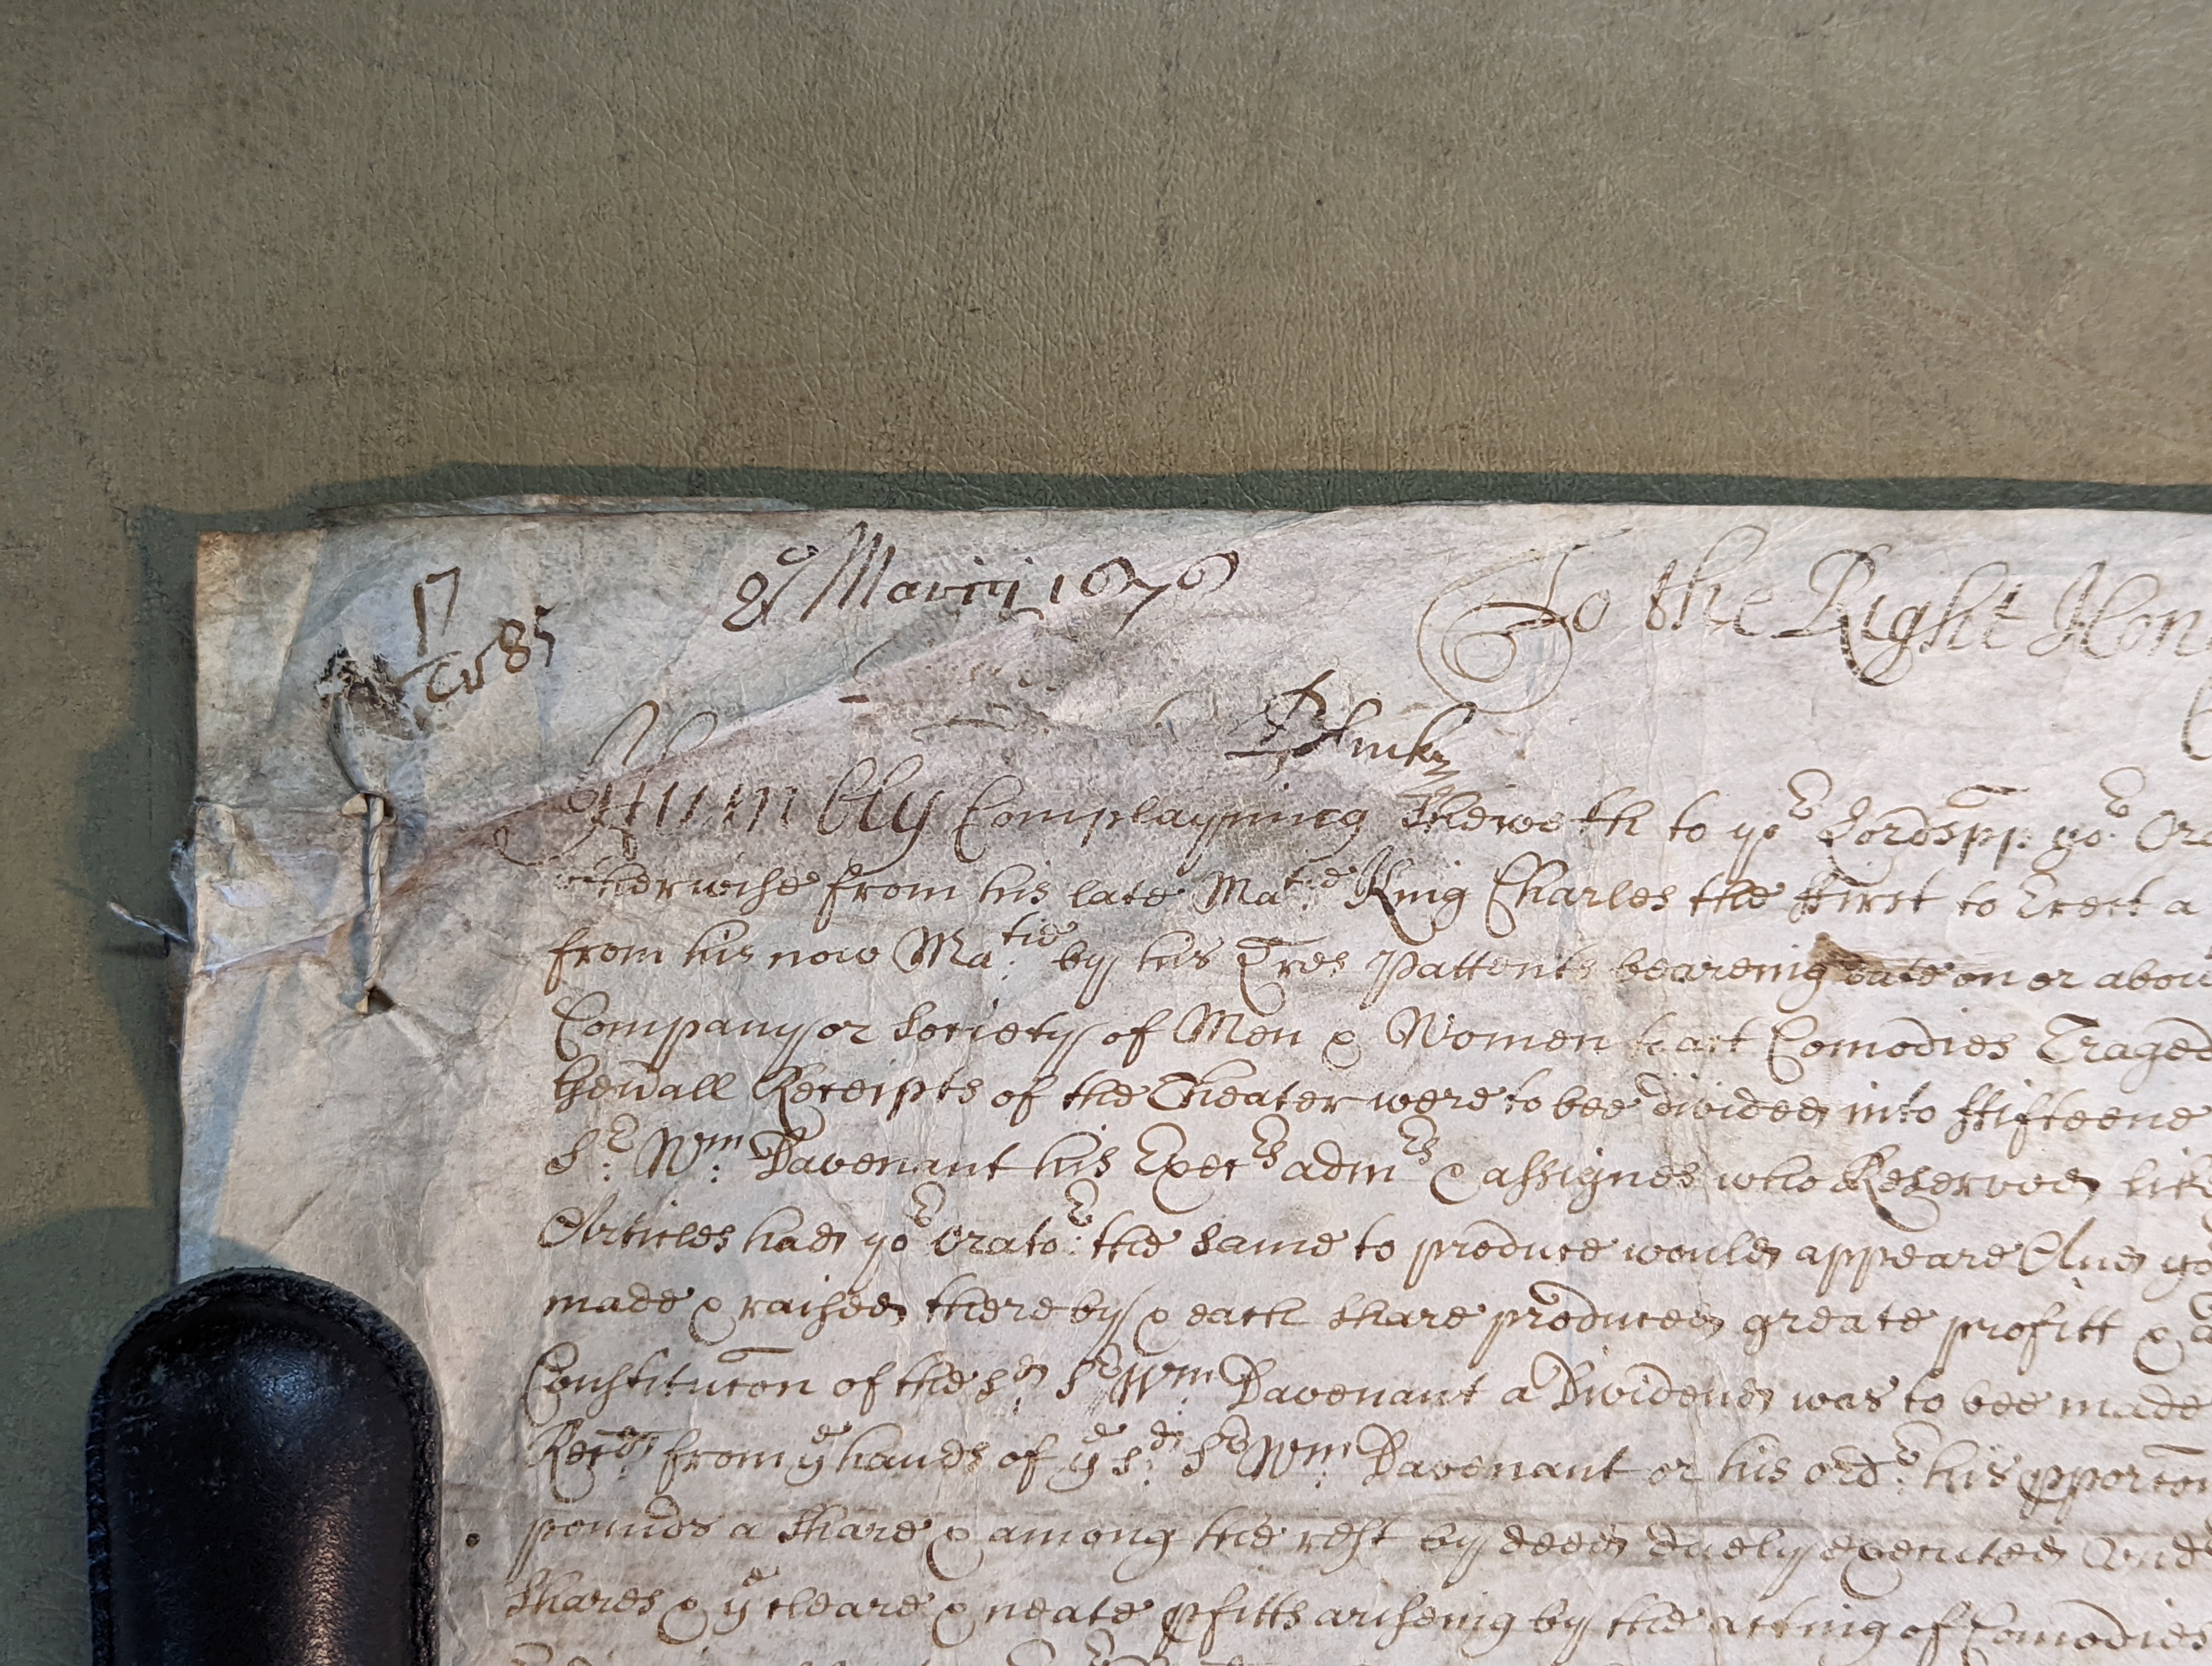 17
85
8o Marcij 1676
To the Right Hon
Humbly Complayning Sheweth to yor Lordspp: yor Or
otherwise from his late Matie: King Charles the ffirst to Erect a
from his now Matie: by his Lres Pattents beareing date on or abou
Company or Society of Men & Women to act Comodies Traged
the wall Receipts of the Theater were to bee divided into ffifteene
Sr: Wm: Davenant his Execrs admrs & assignes who Reserved like
Articles had yor Orator: the same to produce would appeare And yo
made & raised thereby & each share produced greate profitt &
Constitucon of the sd: Sr Wm: Davenant a Dividend was to bee made
from ye hands of ye sd: Sr Wm: Davenant or his ordr: his pporcon
pounds a share & among the rest by deed duely executed Und
Shares & ye cleare & neate pfitts ariseing by the acting of Comodies